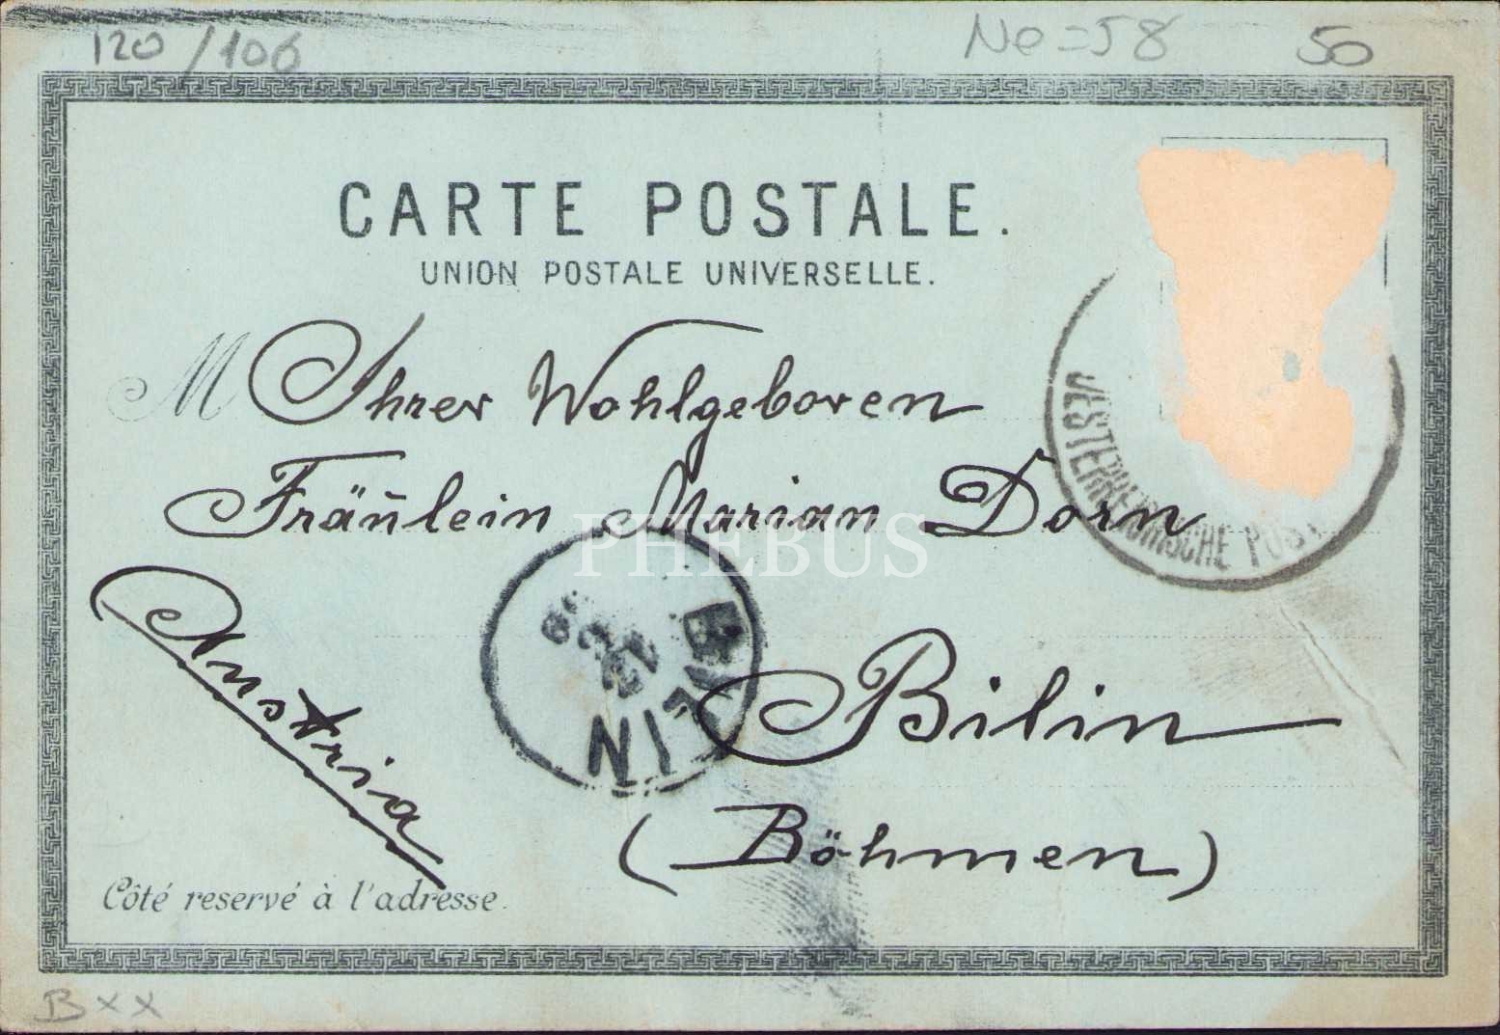 120/106
Ne=58
50
CARTE POSTALE.
UNION POSTALE UNIVERSELLE.
M
Ihrer Wohlgeboren
Fräulein Marian Dorn
PHEBUS
OESTERREICHISCHE POST
BILIN
Bilin
(Böhmen)
Austria
Côté reservé à l'adresse.
BXX